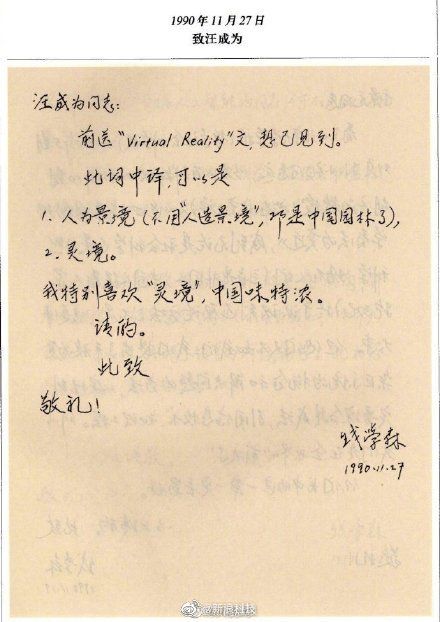 1990年11月27日
致汪成为
汪成为同志:
前送“Virtual Reality”文,想已见到。
此词中译,可以是
1.人为景境(不用“人造景境”,那是中国园林了),
2.灵境。
我特别喜欢“灵境”,中国味特浓。
请酌。
此致
敬礼!
钱学森
1990.11.27
@新浪科技